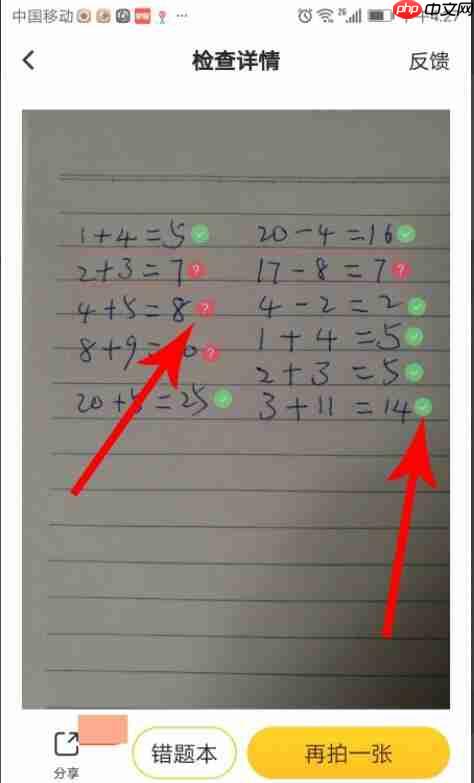 中国移动
2G
4:27
php中文网
检查详情
反馈
1+4=5
2+3=7
4+5=8
8+9=0
20+5=25
20-4=16
17-8=7
4-2=2
1+4=5
2+3=5
3+11=14
分享
错题本
再拍一张